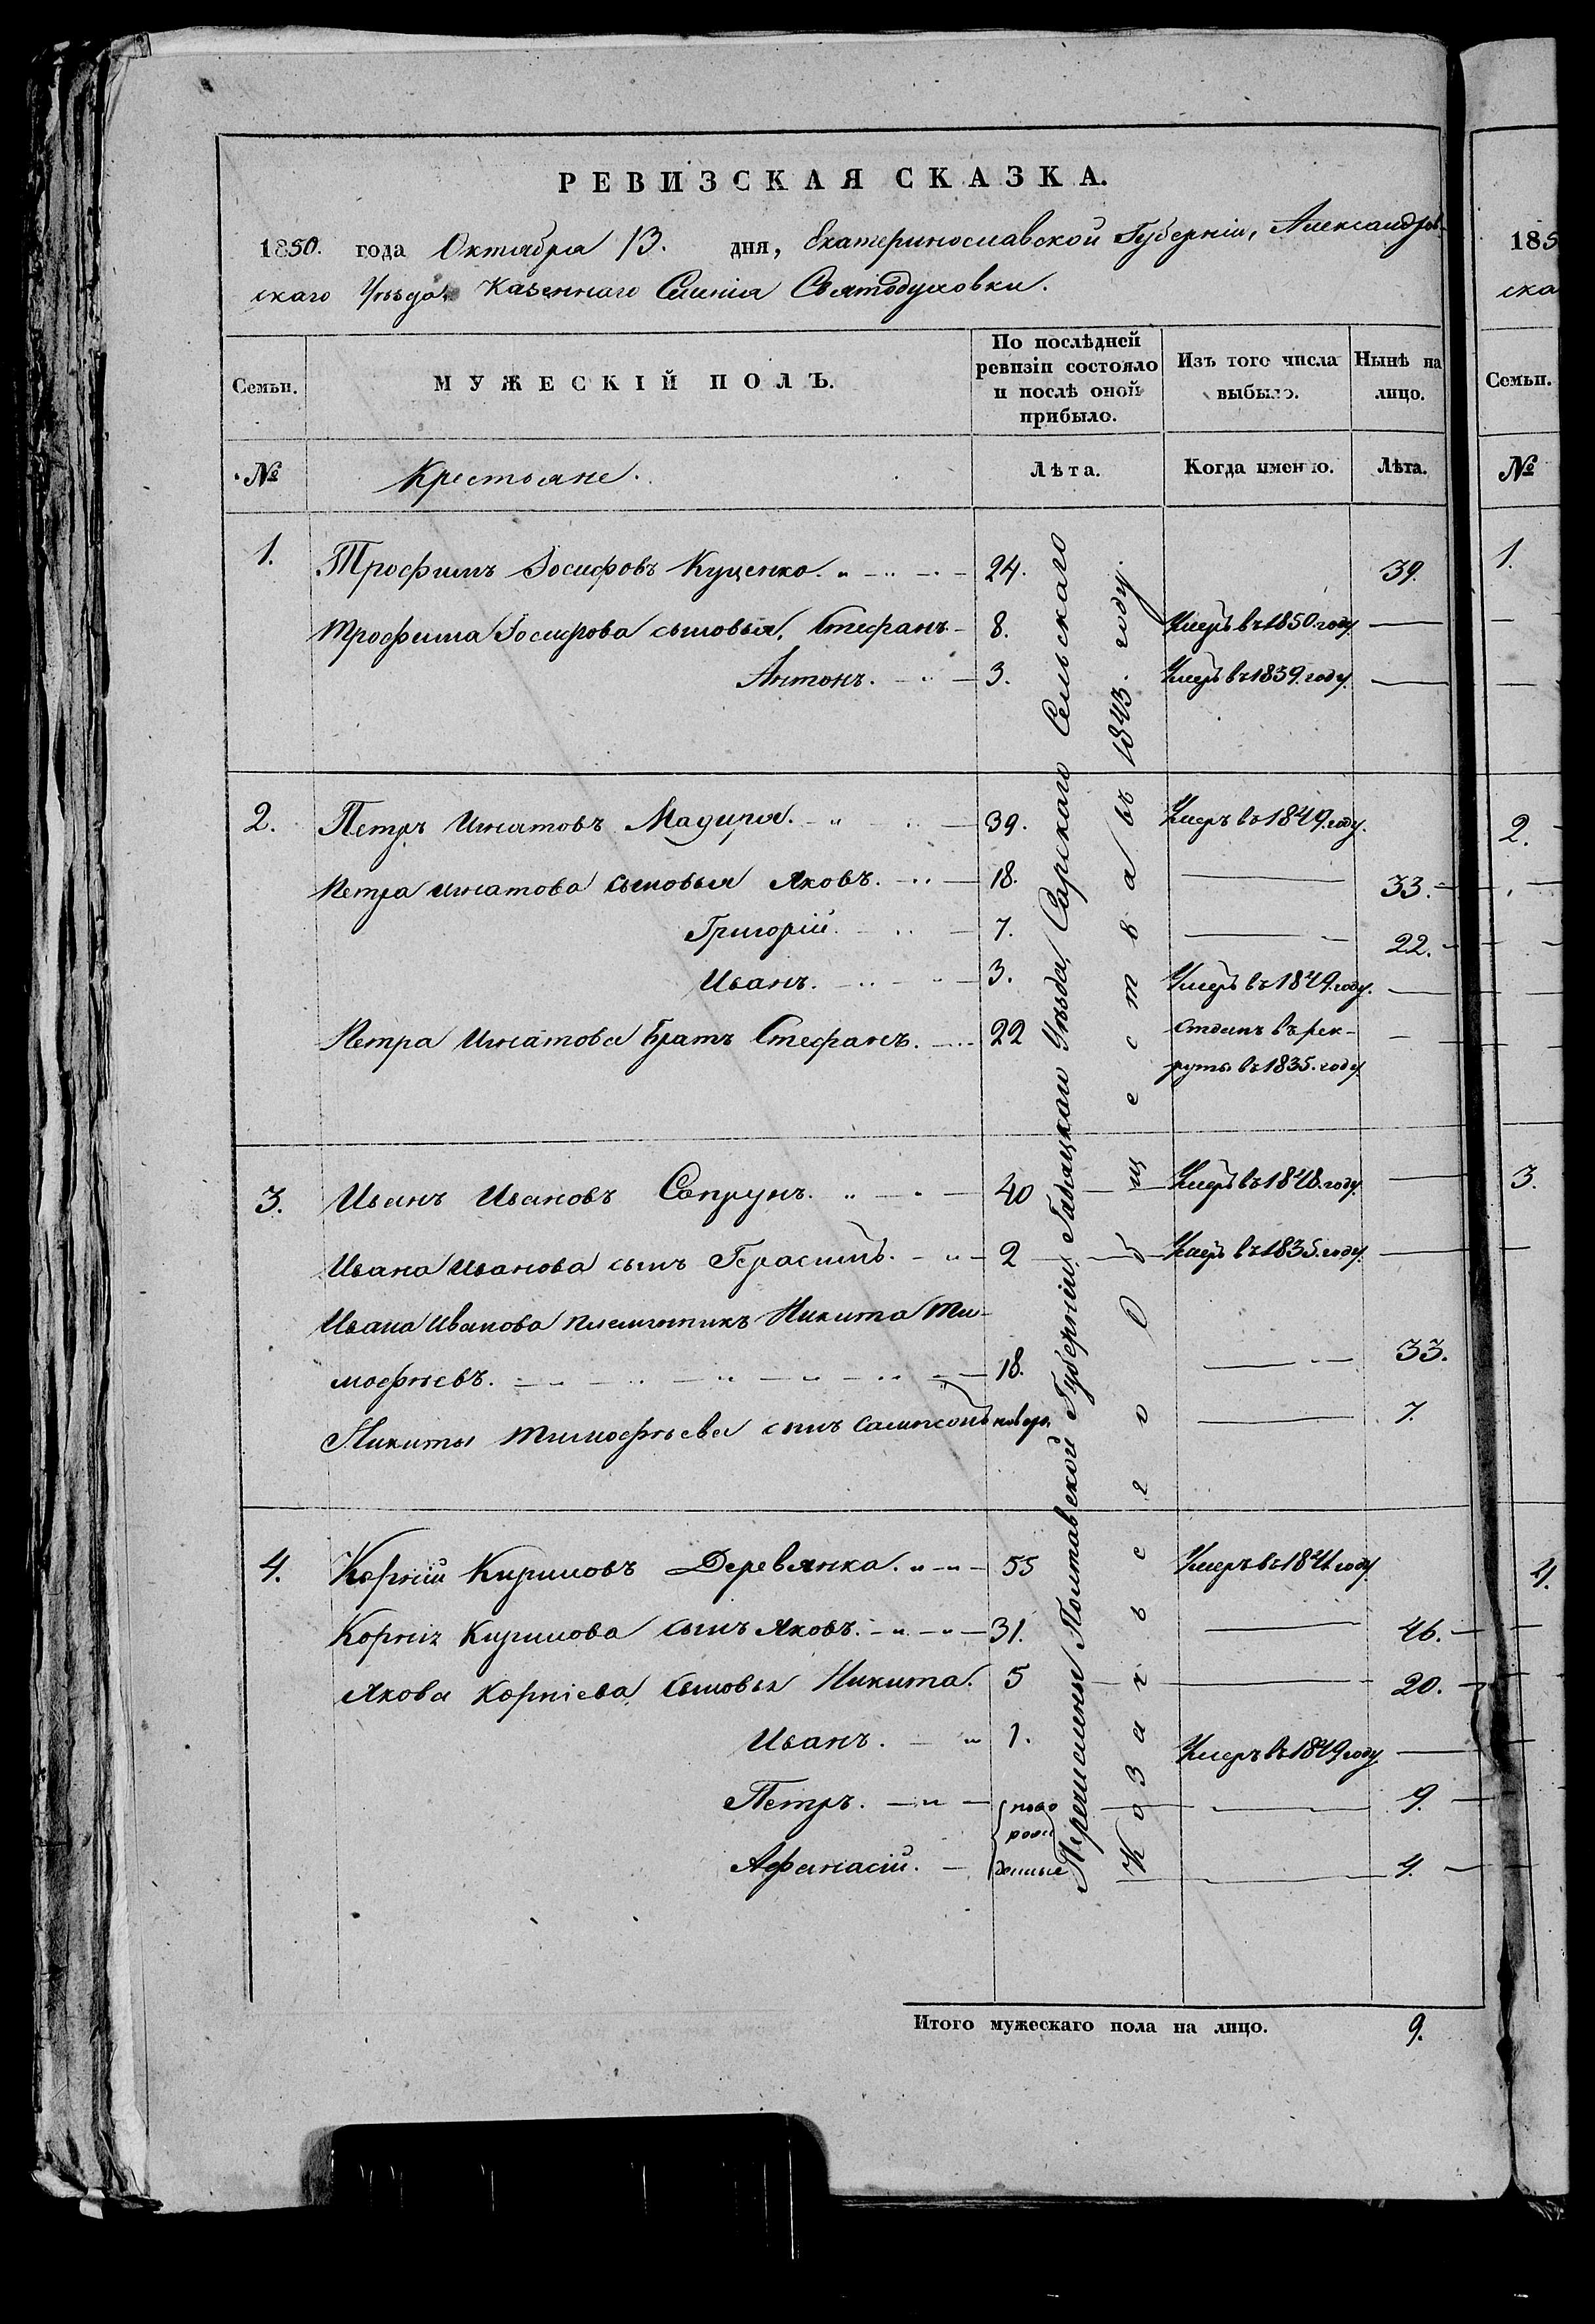 РЕВИЗСКАЯ СКАЗКА.
1850. года Октября 13. дня, Екатеринославской Губерніи, Александров-
скаго Уѣзда, Казеннаго Селенія Святодуховки.
Семьи.
МУЖЕСКІЙ ПОЛЪ.
По послѣдней ревизіи состояло и послѣ оной прибыло.
Изъ того числа выбыло.
Нынѣ на лицо.
№ Крестьяне. Лѣта. Когда именно. Лѣта.
1. Трофимъ Іосифовъ Куценко. 24. 39.
Трофима Іосифова сыновья, Стефанъ 8. Умеръ въ 1850. году
Антонъ. 3. Умеръ въ 1839. году.
2. Петръ Игнатовъ 39. Умеръ въ 1849. году.
Петра Игнатова сыновья Яковъ. 18. 33.
Григорій. 7. 22.
Иванъ. 3. Умеръ въ 1849. году.
Петра Игнатова братъ Стефанъ. 22 Отданъ въ рек-
руты въ 1835. году
3. Иванъ Ивановъ Сапрунъ. 40 Умеръ въ 1848. году.
Ивана Иванова сынъ Герасимъ. 2 Умеръ въ 1835. году.
Ивана Иванова племянникъ Никита Ти-
мофѣевъ. 18. 33.
Никиты Тимофѣева сынъ Сампсонъ новор. 7.
4. Корній Кириловъ Деревянка. 55 Умеръ въ 1841 году.
Корнія Кирилова сынъ Яковъ. 31. 46.
Якова Корніева сыновья Никита. 5 20.
Иванъ. 1. Умеръ въ 1849 году
Петръ. ново 9.
рож
Афанасій. денные 4.
Перечислены Полтавской Губерніи, Гадяцкаго Уѣзда, Сарскаго Сельскаго
Козачьсго Общества въ 1843. году.
Итого мужескаго пола на лицо. 9.
185
ска
Семьи.
№
1.
2.
3.
4.